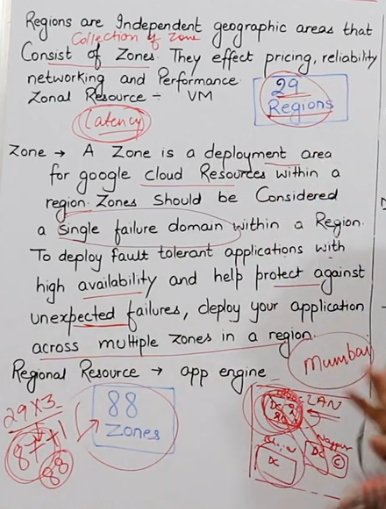 Regions are Independent geographic areas that
Collection of Zone
Consist of Zones. They effect pricing, reliability
networking and Performance.
Zonal Resource - VM
29
Regions
Latency
Zone → A Zone is a deployment area
for google cloud Resources within a
region. Zones should be Considered
a single failure domain within a Region.
To deploy fault tolerant applications with
high availability and help protect against
unexpected failures, deploy your application
across multiple zones in a region.
Mumbai
Regional Resource → app engine
29x3
87+1
88
88
Zones
LAN
DC
DC
C